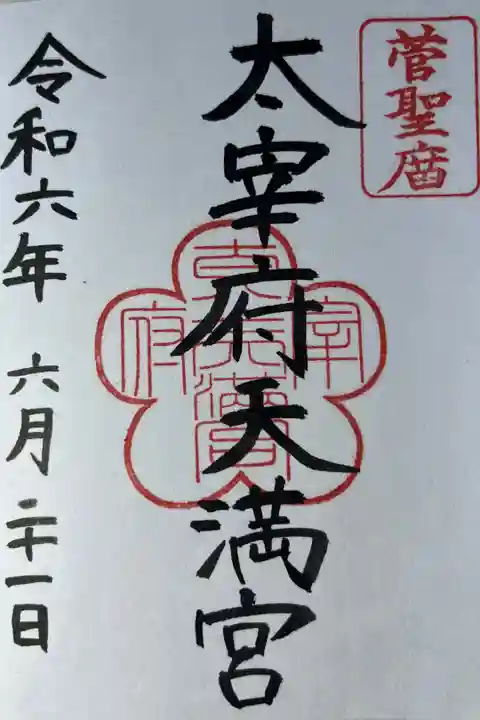 菅聖廟
太宰府天満宮
令和六年 六月二十一日